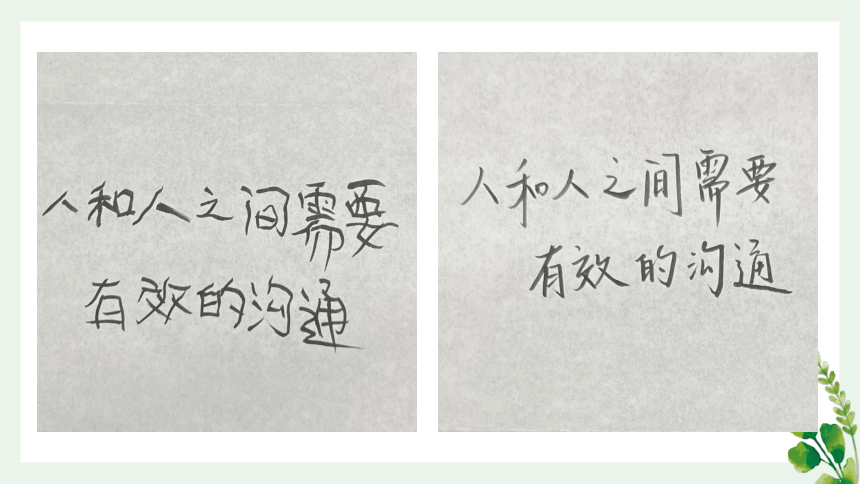 人和人之间需要
有效的沟通
人和人之间需要
有效的沟通